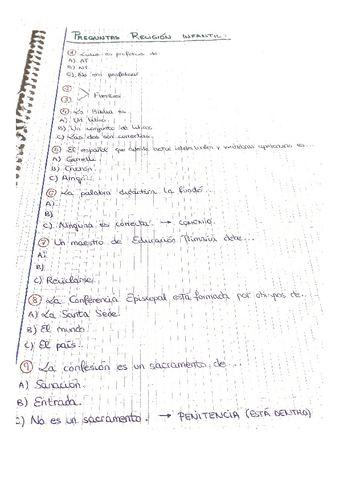 PREGUNTAS RELIGIÓN INFANTIL:
① es profeta de:
A) AT
B) NT
C)
②
③ Familias
④ La Biblia es
A) Un libro.
B) Un conjunto de libros.
C) Las dos son correctas.
⑤ El español que
A)
B)
C)
⑥ La palabra didáctica la fundó...
A)
B)
C) Ninguna es correcta. → COMENIO.
⑦ Un maestro de Educación Primaria debe...
A)
B)
C) Reciclarse.
⑧ La Conferencia Episcopal está formada por obispos de...
A) La Santa Sede.
B) El mundo.
C) El país.
9 La confesión es un sacramento de...
A) Sanación.
B) Entrada.
C) No es un sacramento. → PENITENCIA (ESTÁ DENTRO)